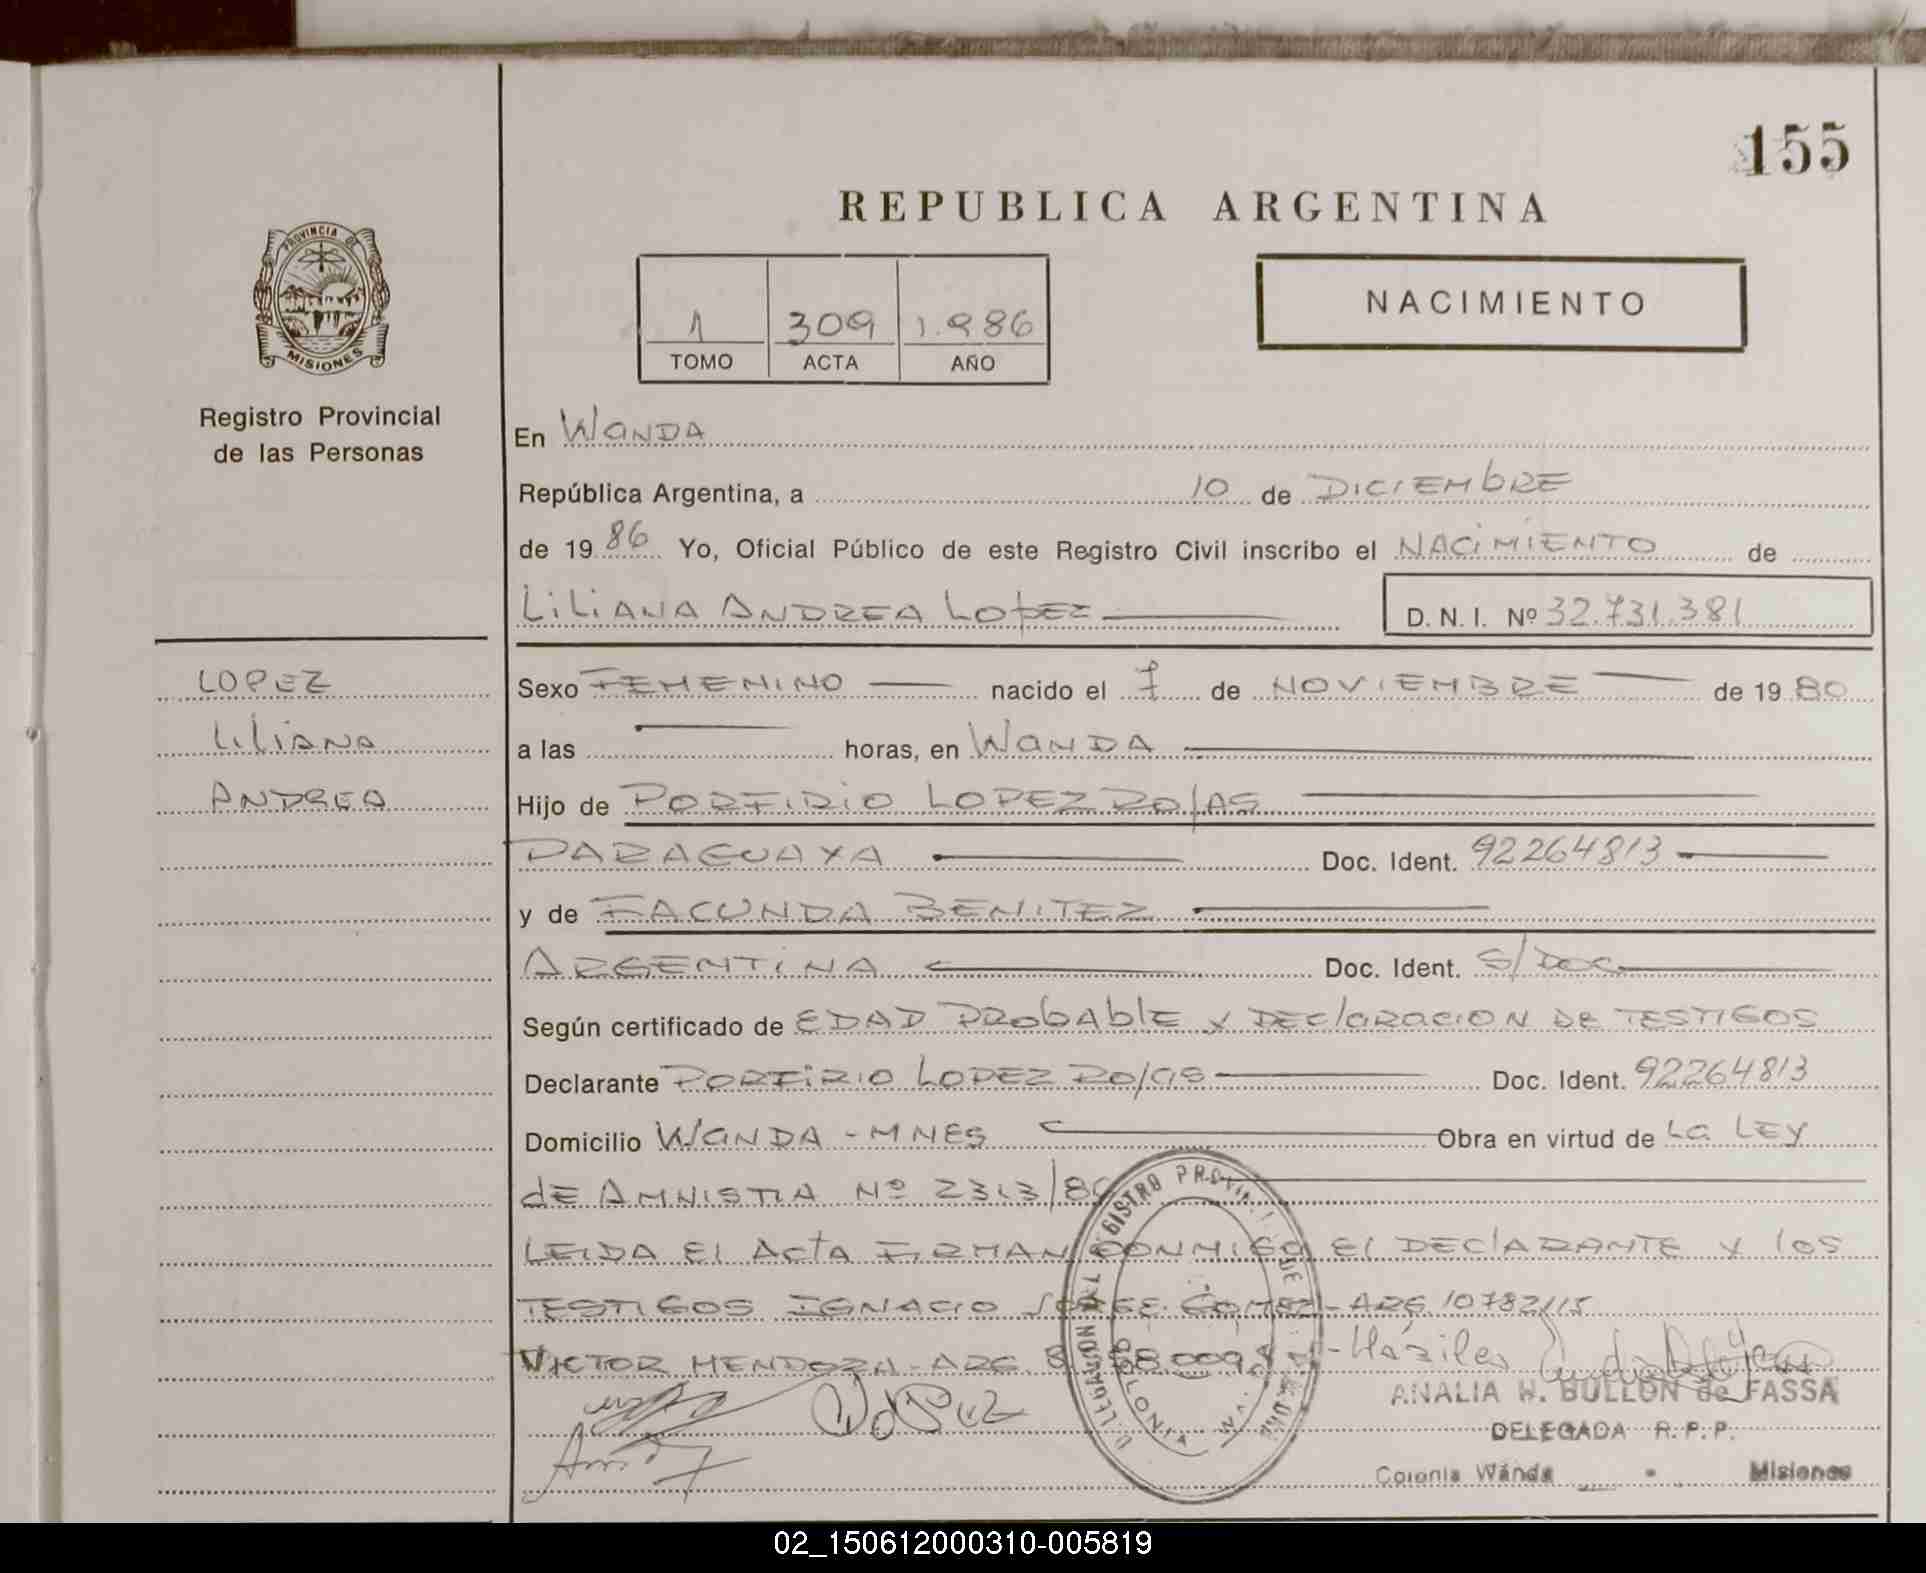 155
REPUBLICA ARGENTINA
PROVINCIA DE
MISIONES
Registro Provincial
de las Personas
1 309 1.986
TOMO ACTA AÑO
NACIMIENTO
En WANDA
República Argentina, a 10 de DICIEMbRE
de 1986 Yo, Oficial Público de este Registro Civil inscribo el NACIMIENTO de
LILIANA ANDREA LOPEZ
D. N. I. Nº 32.731.381
LOPEZ
LILIANA
ANDREA
Sexo FEMENINO nacido el 7 de NOVIEMBRE de 1980
a las horas, en WANDA
Hijo de PORFIRIO LOPEZ ROJAS
PARAGUAYA Doc. Ident. 92264813
y de FACUNDA BENITEZ
ARGENTINA Doc. Ident. S/DOC
Según certificado de EDAD PRObAblE y DEClaRACION DE TESTIGOS
Declarante PORFIRIO LOPEZ ROJAS Doc. Ident. 92264813
Domicilio WANDA - MNES Obra en virtud de La LEY
dE AMNISTIA Nº 2313/86
LEIDA El ActA FIRMAN CONMIGO El DEClARANTE y los
TESTIGOS IGNACIO JORGE GOMEZ - ARG 10782115
VICTOR MENDOZA - ARG.
ANALIA W. BULLON de FASSA
DELEGADA R. P. P.
Colonia Wanda - Misiones
02_150612000310-005819